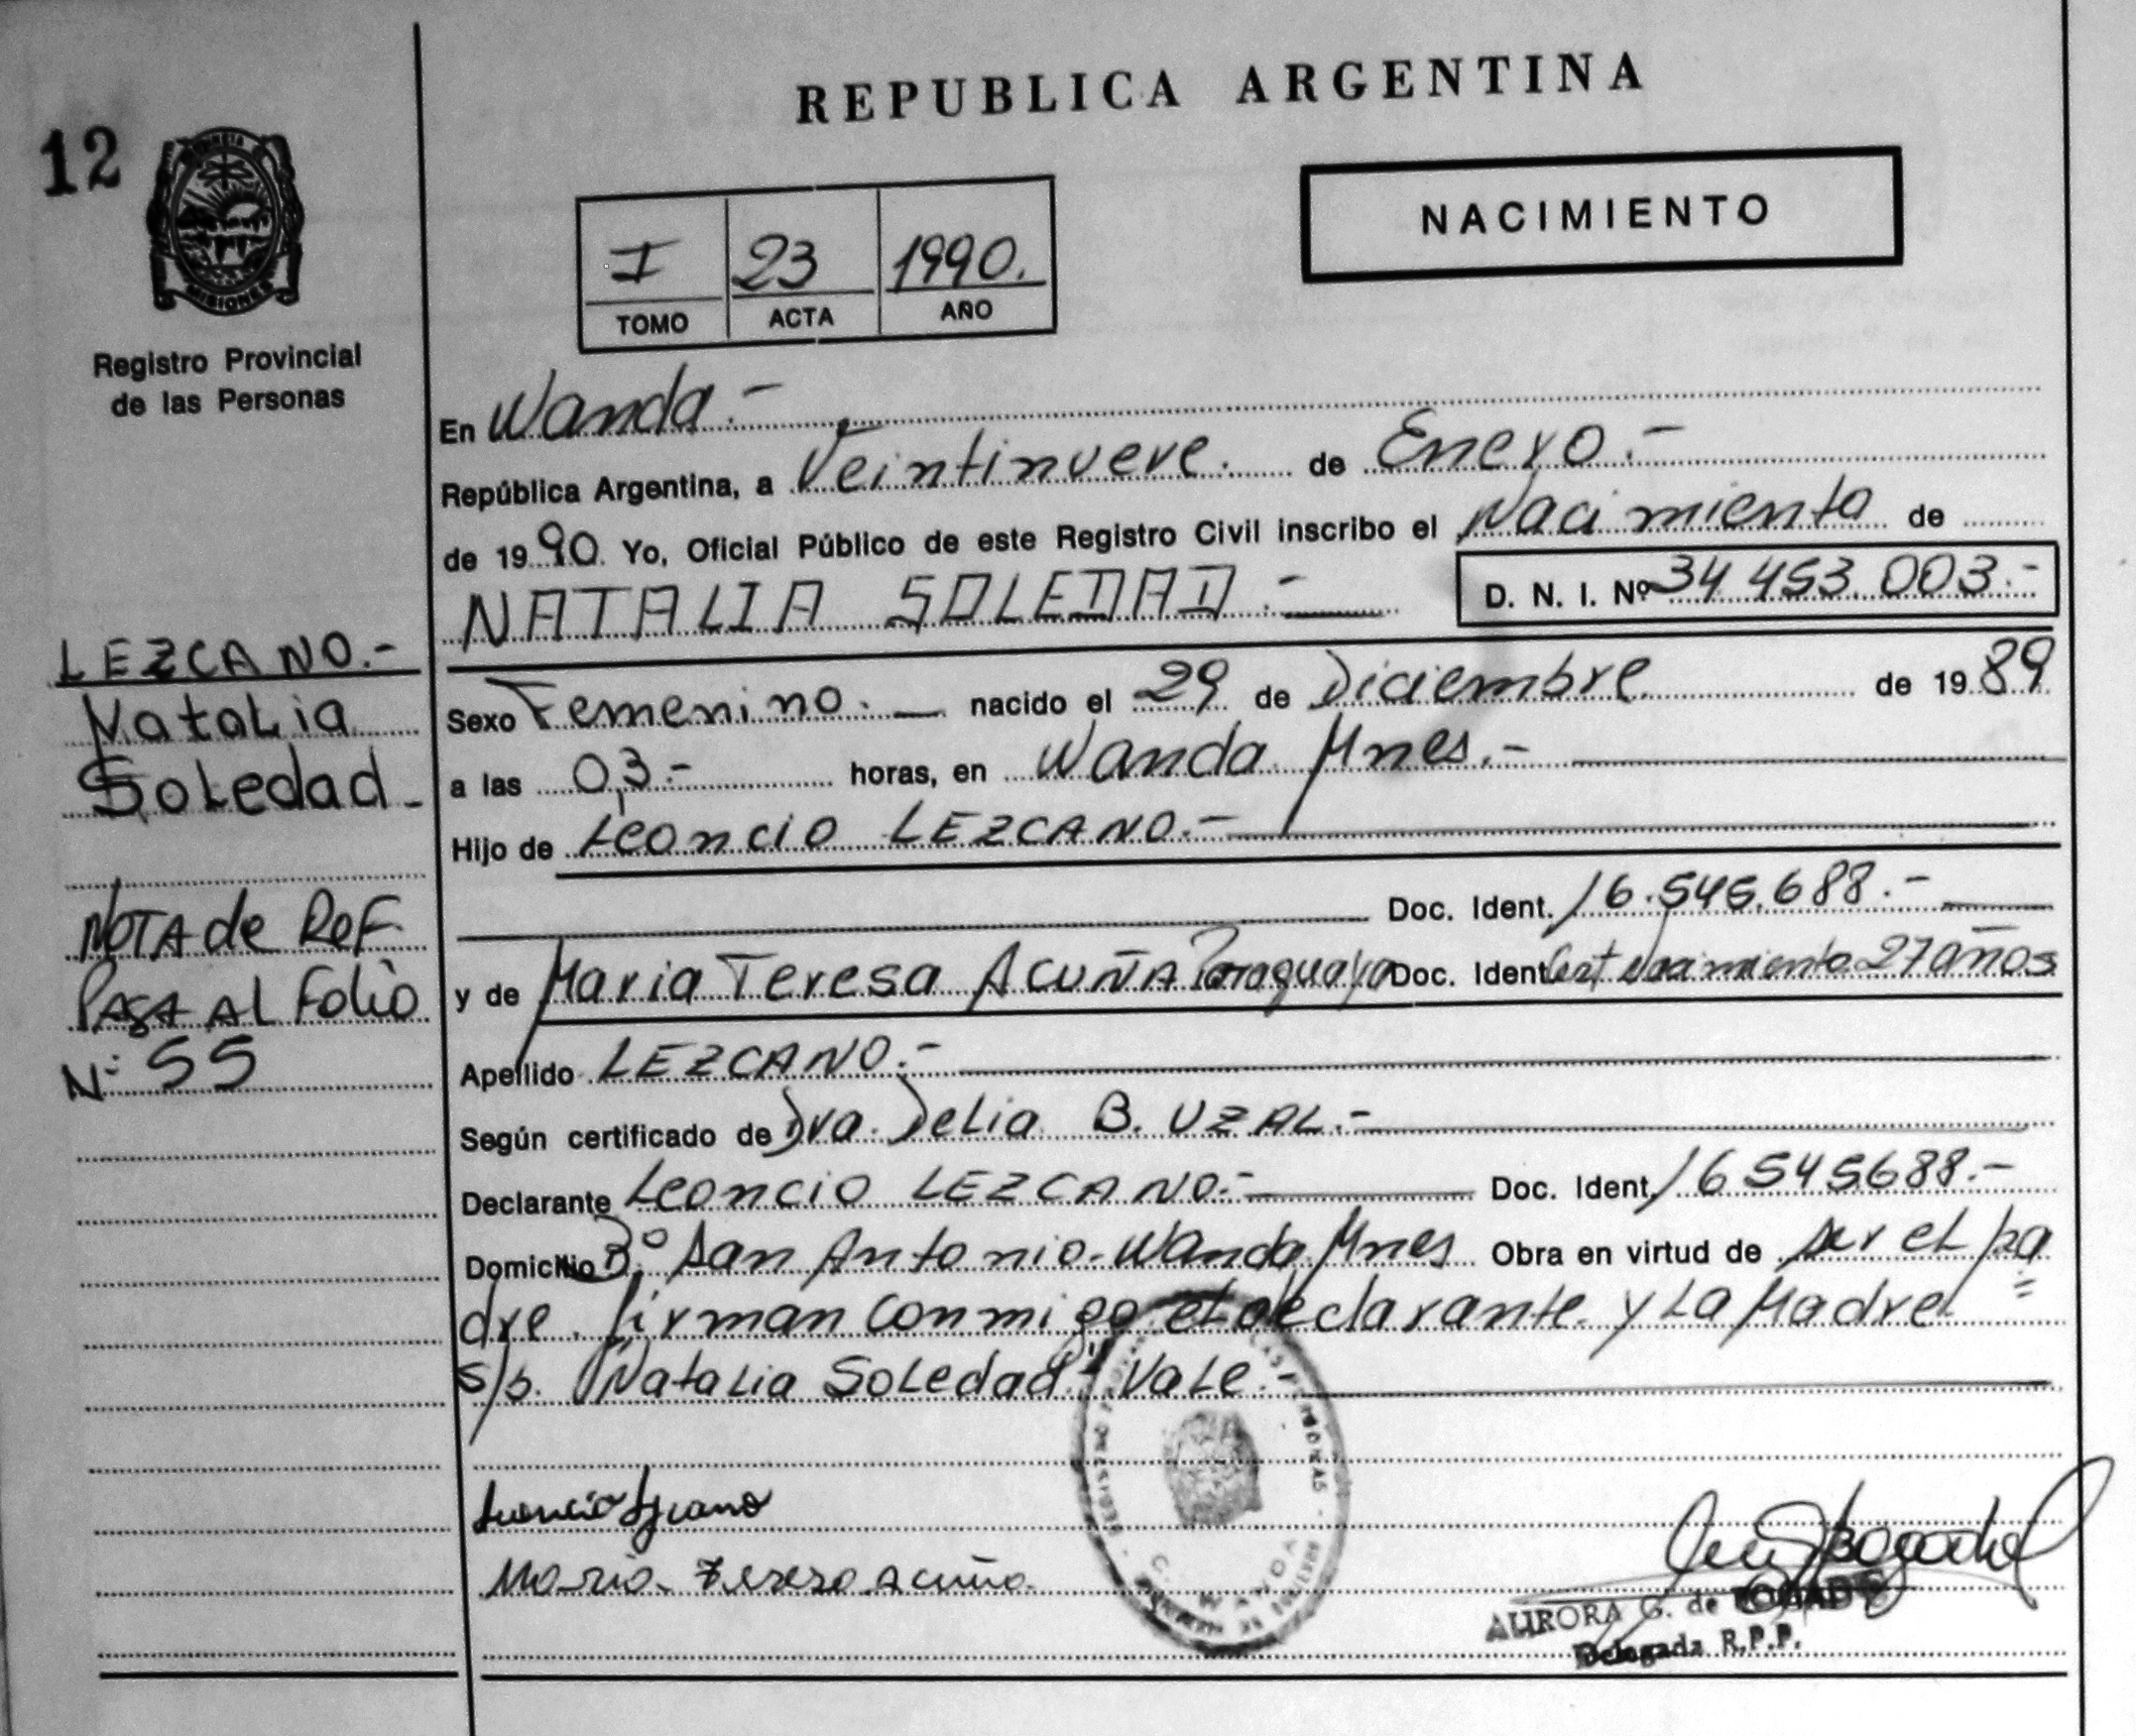 REPUBLICA ARGENTINA
12
MISIONES
Registro Provincial
de las Personas
NACIMIENTO
I 23 1990.
TOMO ACTA AÑO
En Wanda.-
República Argentina, a Veintinueve. de Enero.-
de 1990. Yo, Oficial Público de este Registro Civil inscribo el Nacimiento de
NATALIA SOLEDAD.- D. N. I. Nº 34 453.003.-
LEZCANO.-
Natalia
Soledad-
Sexo Femenino.- nacido el 29 de Diciembre de 1989
a las 03.- horas, en Wanda Mnes.-
Hijo de Leoncio LEZCANO.-
Doc. Ident. 16.545.688.-
y de Maria Teresa ACUÑA Paraguaya Doc. Ident. Cert Nacimiento 27 años
NOTA de REF.
PASA AL Folio
N: 55
Apellido LEZCANO.-
Según certificado de Dra. Delia B. UZAL.-
Declarante Leoncio LEZCANO.- Doc. Ident. 16545688.-
Domicilio Bº San Antonio-Wanda Mnes Obra en virtud de ser el pa
dre. firman conmigo el declarante y La Madre
s/b. "Natalia Soledad" Vale.-
Maria Teresa Acuña
AURORA G. de
Delegada R.P.P.